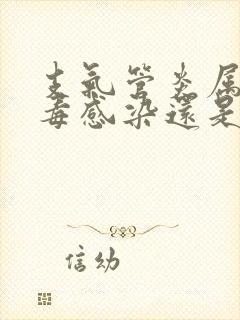 支氣管炎属
毒感染還是
信幼